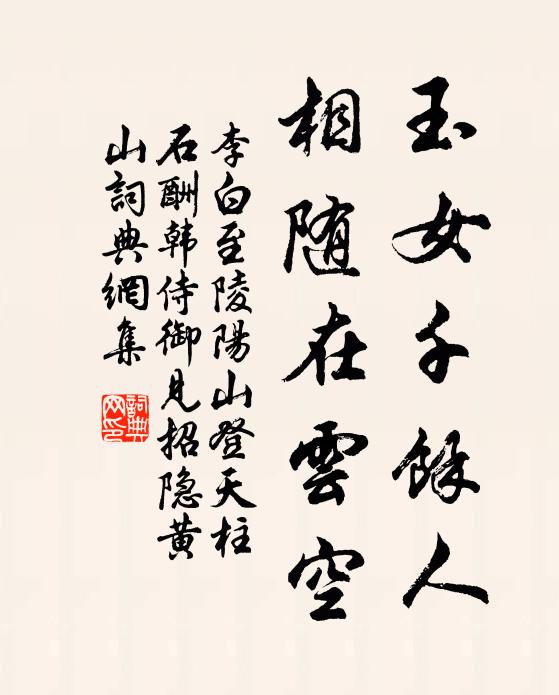 玉女千餘人
相随在雲空
李白至陵陽山登天柱
石酬韓侍御見招隐黄
山詞典網集
詞典
网印